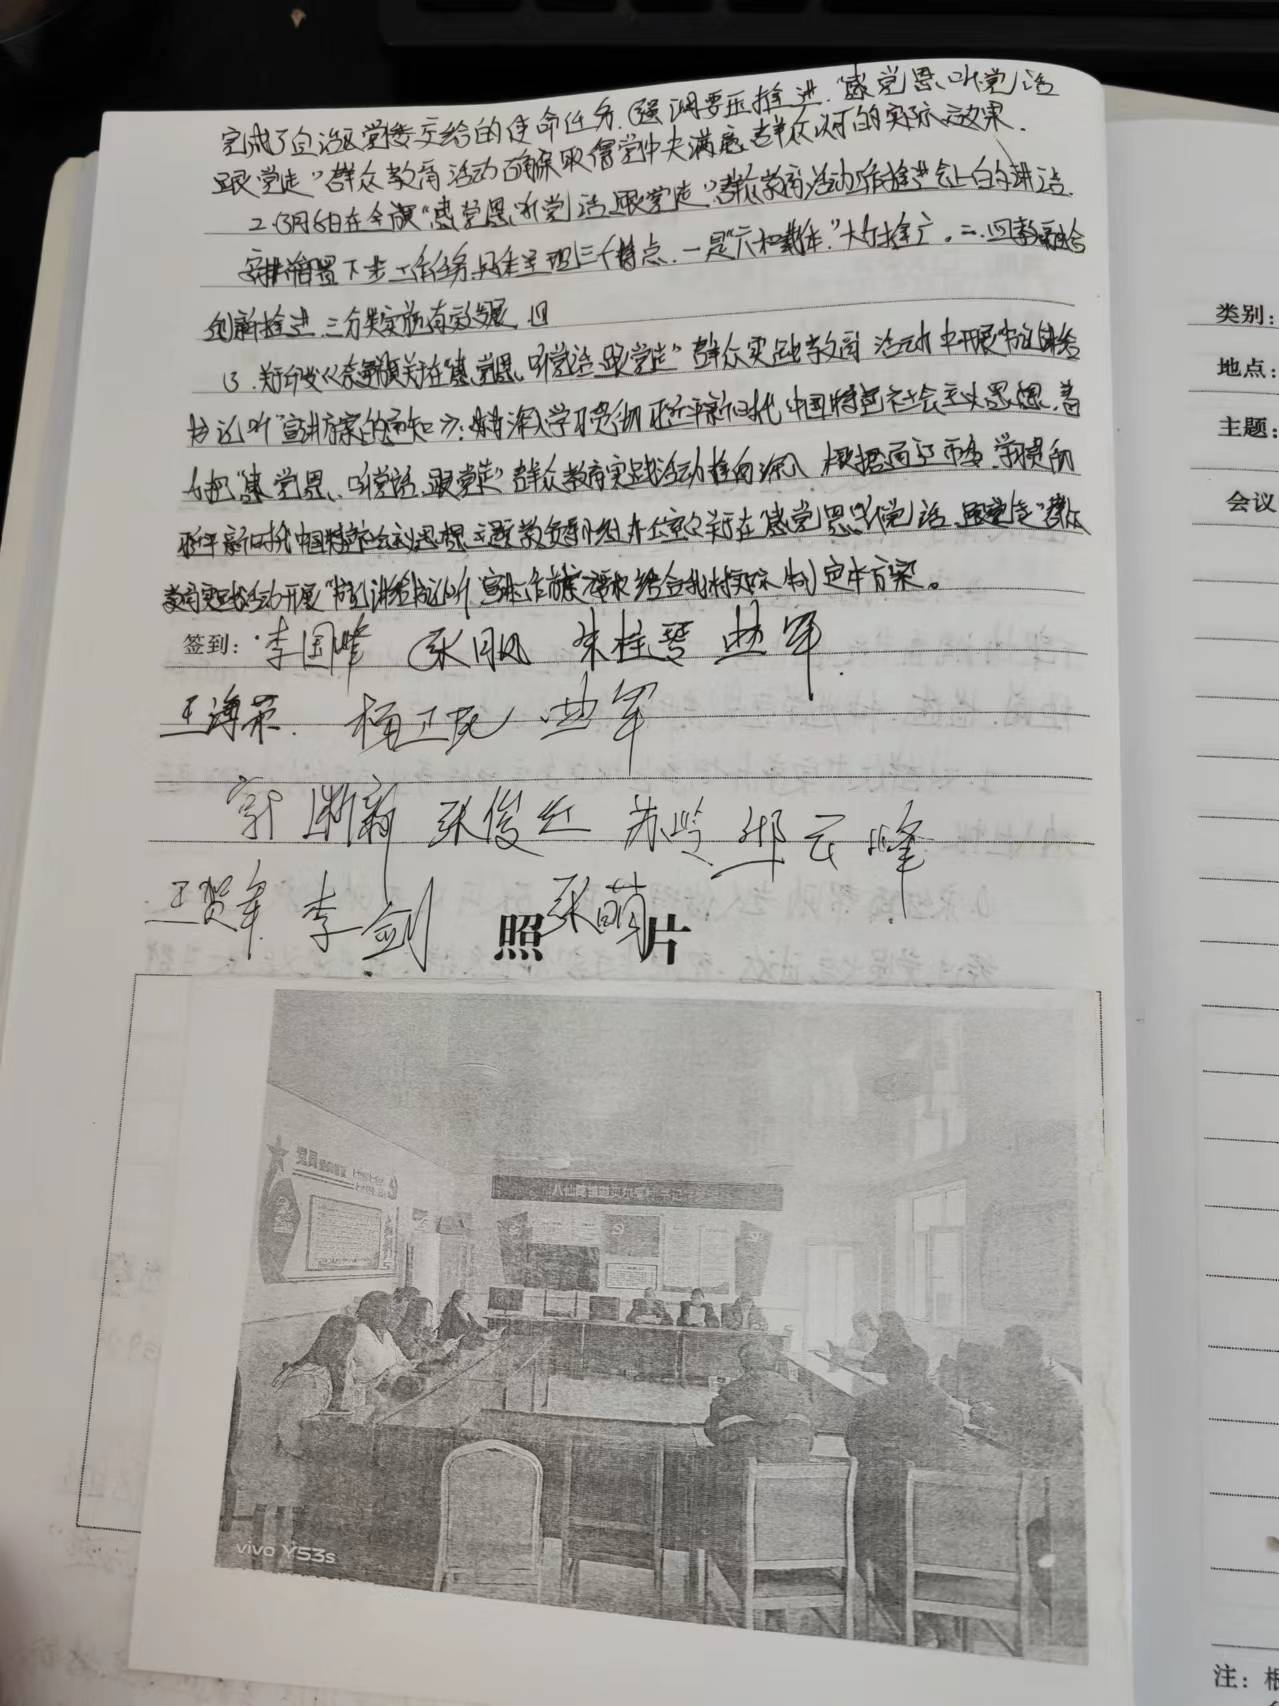 完成了自治区党委交给的使命任务,强调要压推进"感党恩、听党话
跟党走"群众教育活动确保取得党中央满意群众认可的实际效果.
2.3月6日在全旗"感党恩、听党话、跟党走"群众教育活动工作推进会上的讲话.
安排部署下步工作任务,呈现三个特点.一是"六和载体"大力推广.二.四教融合
创新推进,三分类实施有效发展,四
13.关于印发《奈曼旗关于在"感党恩、听党话、跟党走"群众实践教育活动中开展"书记讲给
书记听"宣讲方案的通知》:为深入学习贯彻习近平新时代中国特色社会主义思想,着
力把"感党恩、听党话、跟党走"群众教育实践活动推向深入,根据通辽市委 学习贯彻
习近平新时代中国特色社会主义思想主题教育领导小组办公室《关于在"感党恩、听党话、跟党走"群众
教育实践活动开展"书记讲给书记听"宣讲工作方案》要求 结合我村实际 制定本方案。
签到: 李国峰 张 朱桂琴 丛军
王海荣. 杨卫民 丛军
新 张俊红 苏岭 邢云峰
王贺年 李剑 张萌
照片
vivo Y53s
类别:
地点:
主题:
会议
注: